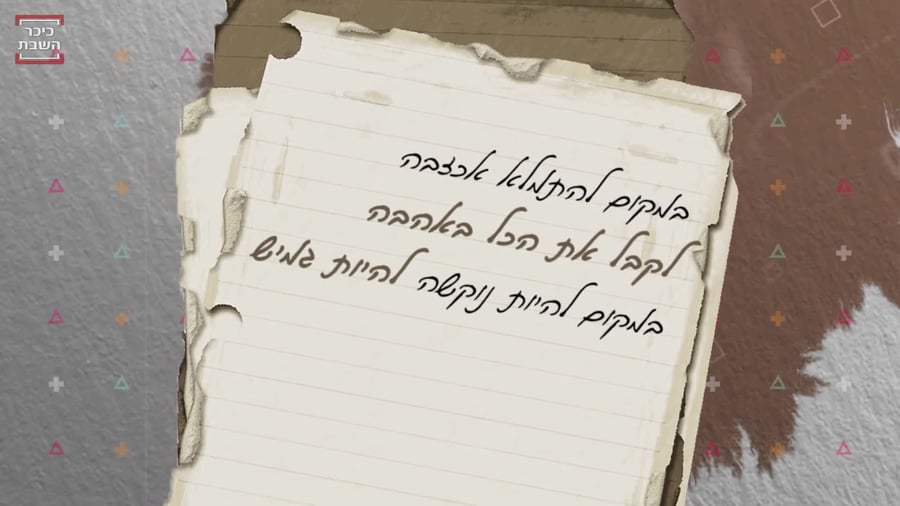 כיכר
השבת
במקום להתמלא אכזבה
לקבל את הכל באהבה
במקום להיות נוקשה להיות גמיש